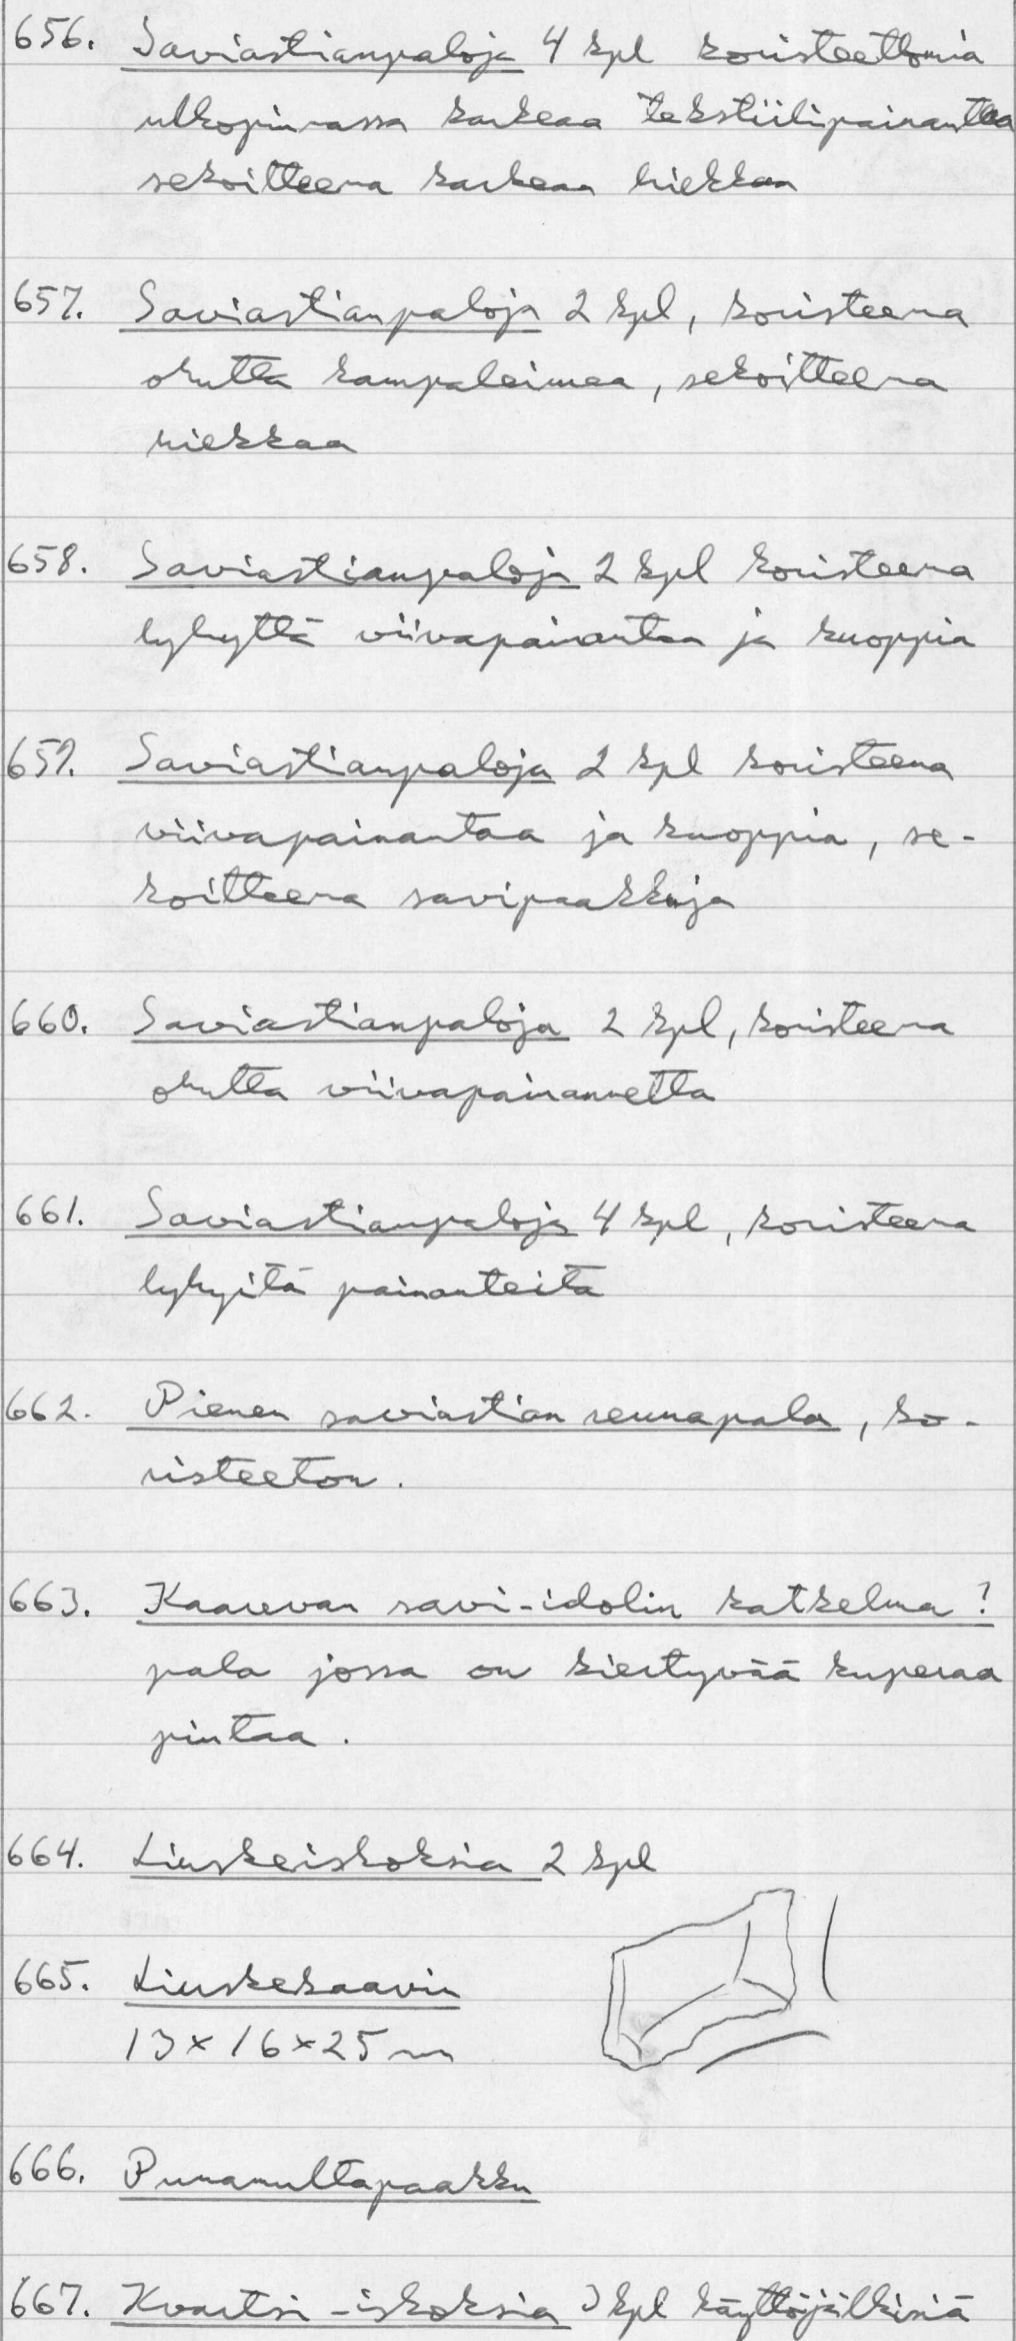 656. Saviastianpaloja 4 kpl koristeettomia
ulkopinnassa karkeaa tekstiilipainantaa
sekoitteena karkeaa hiekkaa
657. Saviastianpaloja 2 kpl, koristeena
ohutta kampaleimaa, sekoitteena
hiekkaa
658. Saviastianpaloja 2 kpl koristeena
lyhyttä viivapainantaa ja kuoppia
659. Saviastianpaloja 2 kpl koristeena
viivapainantaa ja kuoppia, se-
koitteena savipaakkuja
660. Saviastianpaloja 2 kpl, koristeena
ohutta viivapainannetta
661. Saviastianpaloja 4 kpl, koristeena
lyhyitä painanteita
662. Pienen saviastian reunapala, ko-
risteeton.
663. Kaarevan savi-idolin katkelma?
pala jossa on kiertyvää kuperaa
pintaa.
664. Liuskeiskoksia 2 kpl
665. Liuskekaavin
13 x 16 x 25 mm
666. Punamultapaakku
667. Kvartsi-iskoksia 3 kpl käyttöjälkisiä